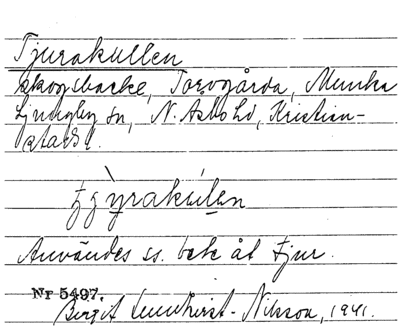 Tjurakullen
skogsbacke, Torvgårda, Munka
Ljungby sn, N. Åsbo hd, Kristian-
stads l.
Användes ss. bete åt tjur.
Nr 5497.
Birgit Nilsson, 1941.